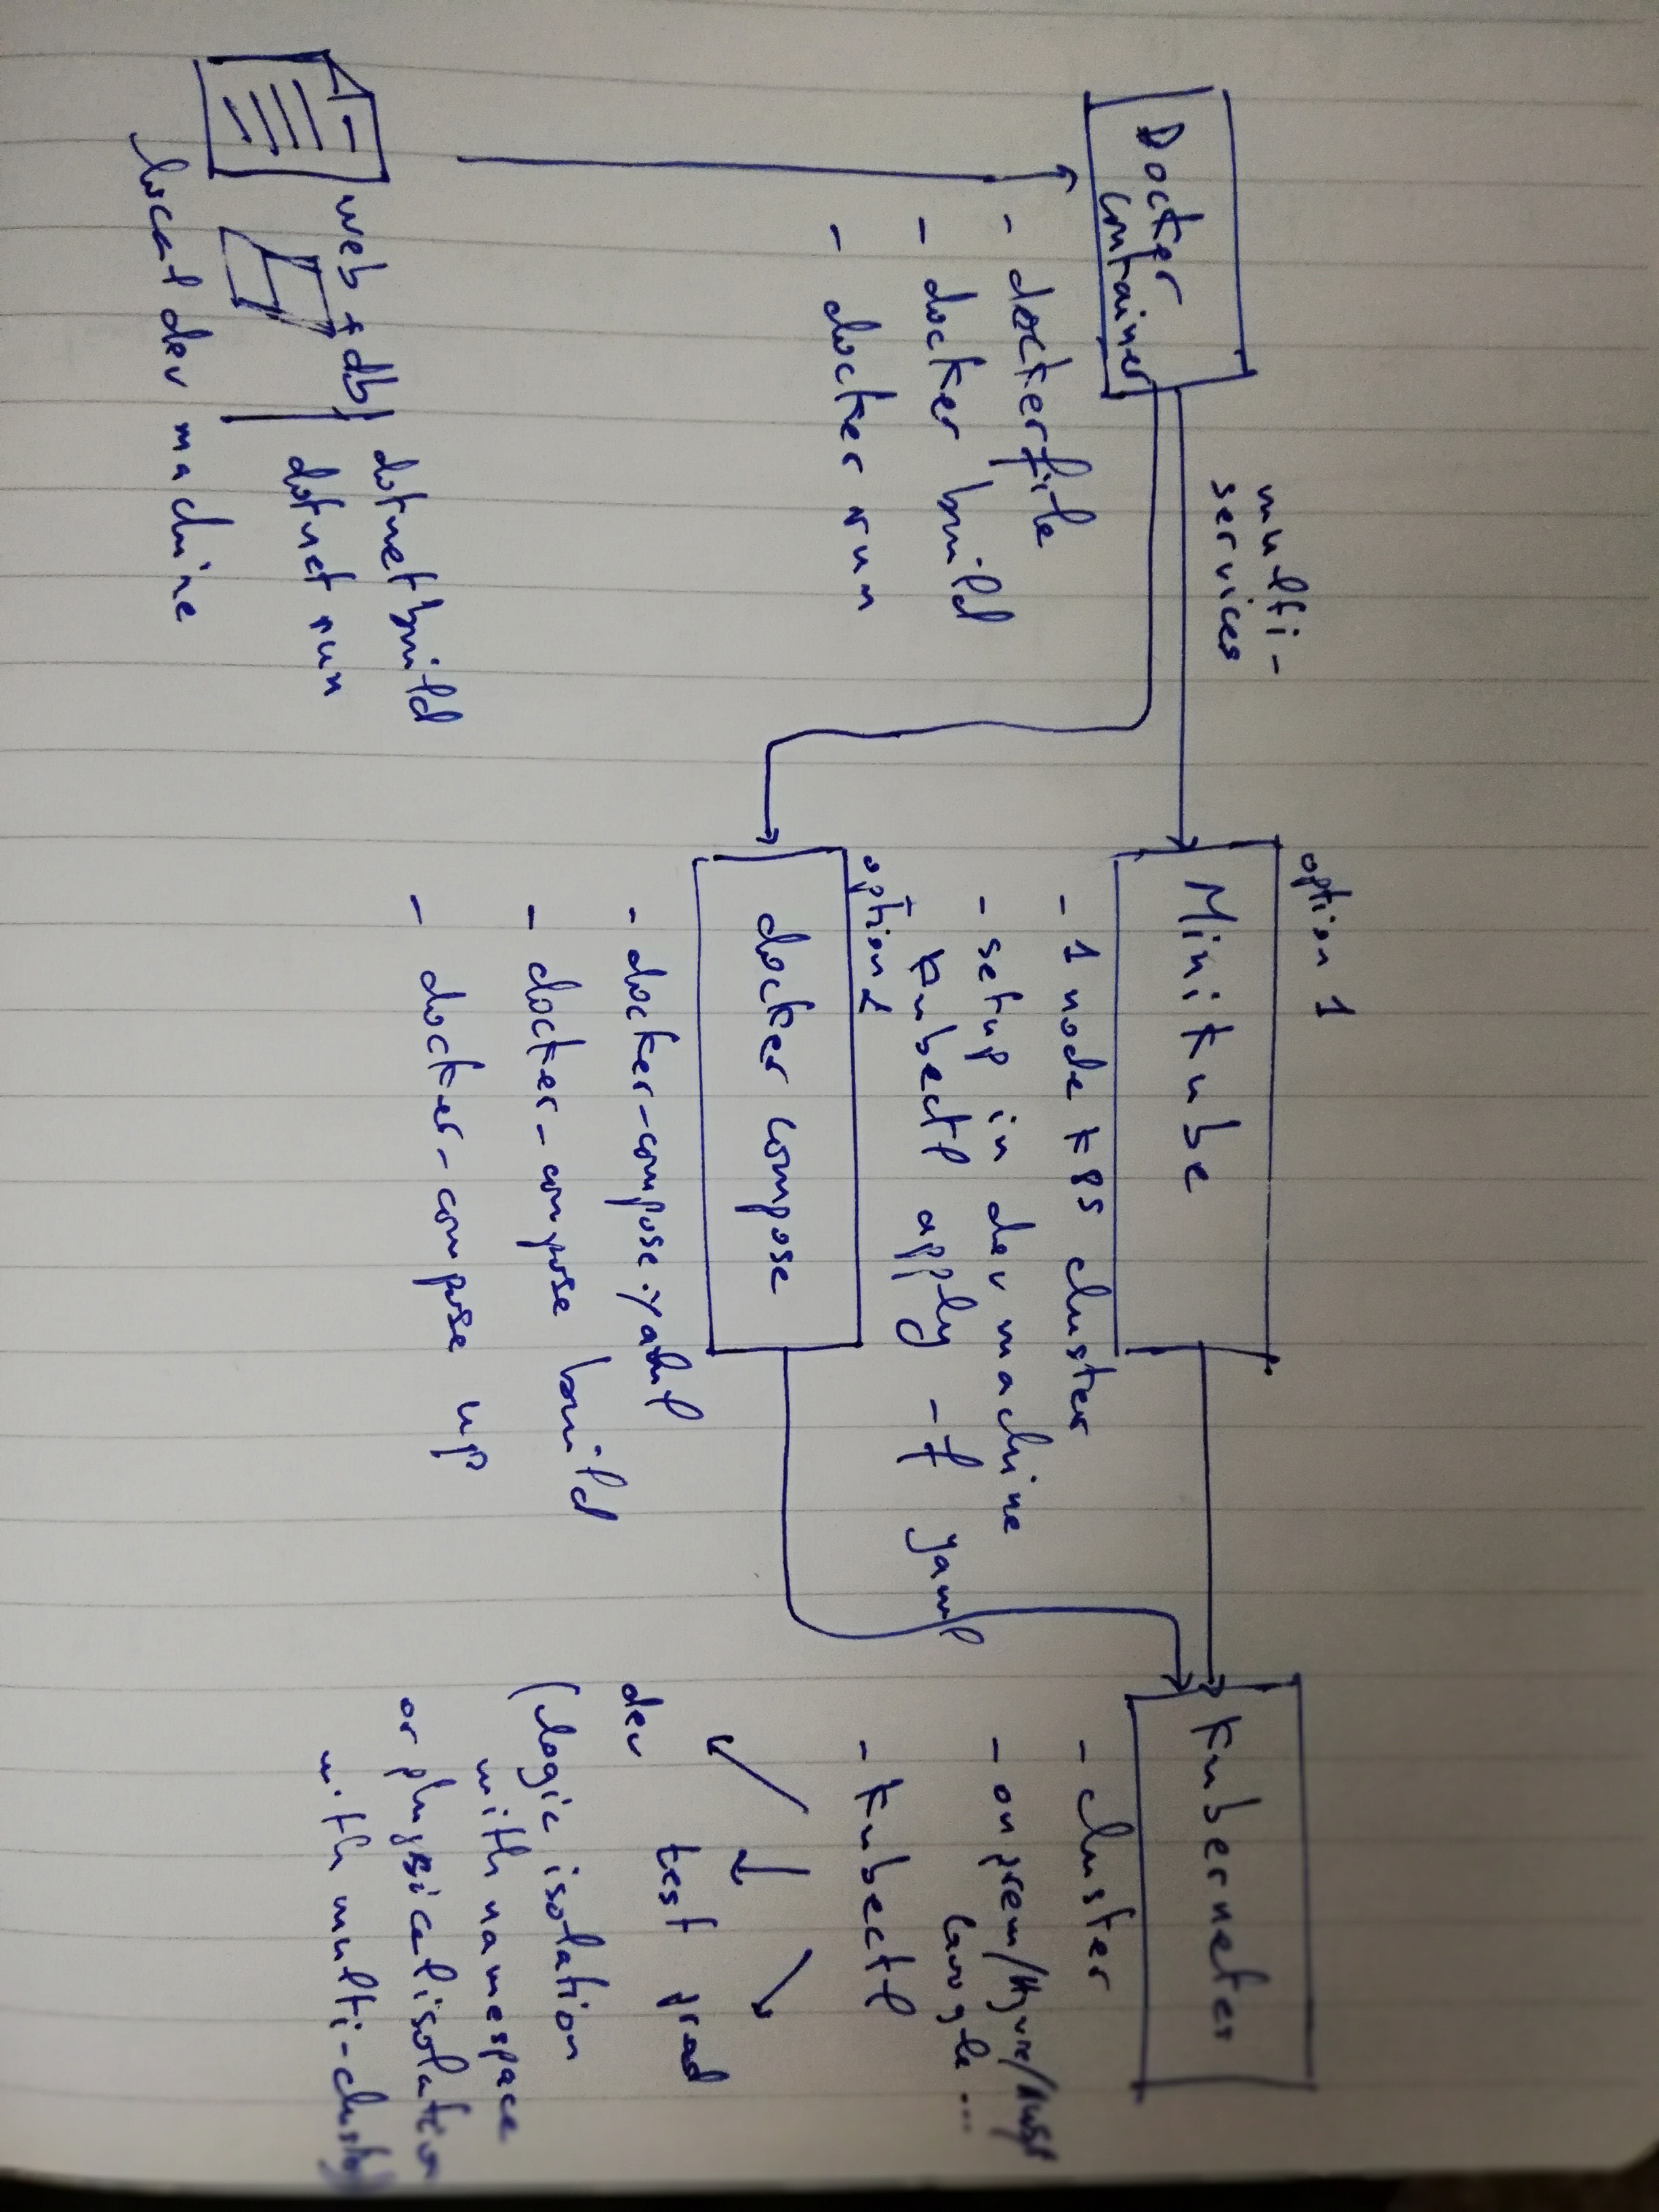 Docker
container
- dockerfile
- docker build
- docker run
web + db
dotnet build
dotnet run
local dev machine
multi-
services
option 1
Minikube
- 1 node k8s cluster
- setup in dev machine
kubectl apply -f yaml
option 2
docker compose
- docker-compose.yaml
- docker-compose build
- docker-compose up
Kubernetes
- cluster
- on prem/Azure/AWS/
Google ...
- kubectl
dev test prod
(logic isolation
with namespace
or physical isolation
with multi-cluster)